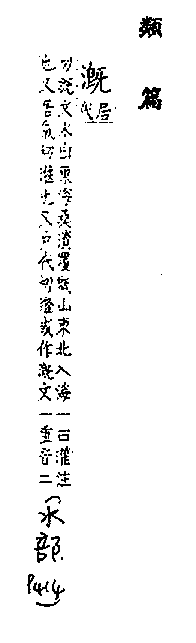 類篇
溉居代
切說文水出東海桑瀆覆甑山東北入海一曰灌注
也又氣切滌也又代切或作溉文一重音二
(水部P414)